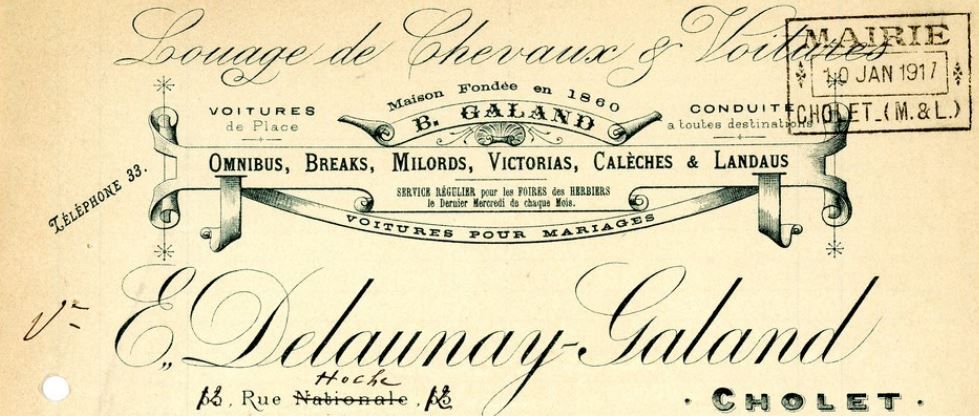 Louage de Chevaux & Voitures
MAIRIE
10 JAN 1917
CHOLET_(M.&L.)
Maison Fondée en 1860
B. GALAND
VOITURES
de Place
CONDUITE
a toutes destinations
OMNIBUS, BREAKS, MILORDS, VICTORIAS, CALÈCHES & LANDAUS
SERVICE RÉGULIER pour les FOIRES des HERBIERS
le Dernier Mercredi de chaque Mois.
VOITURES POUR MARIAGES
TÉLÉPHONE 33.
E. Delaunay-Galand
Vve
Hoche
Rue Nationale
· CHOLET ·